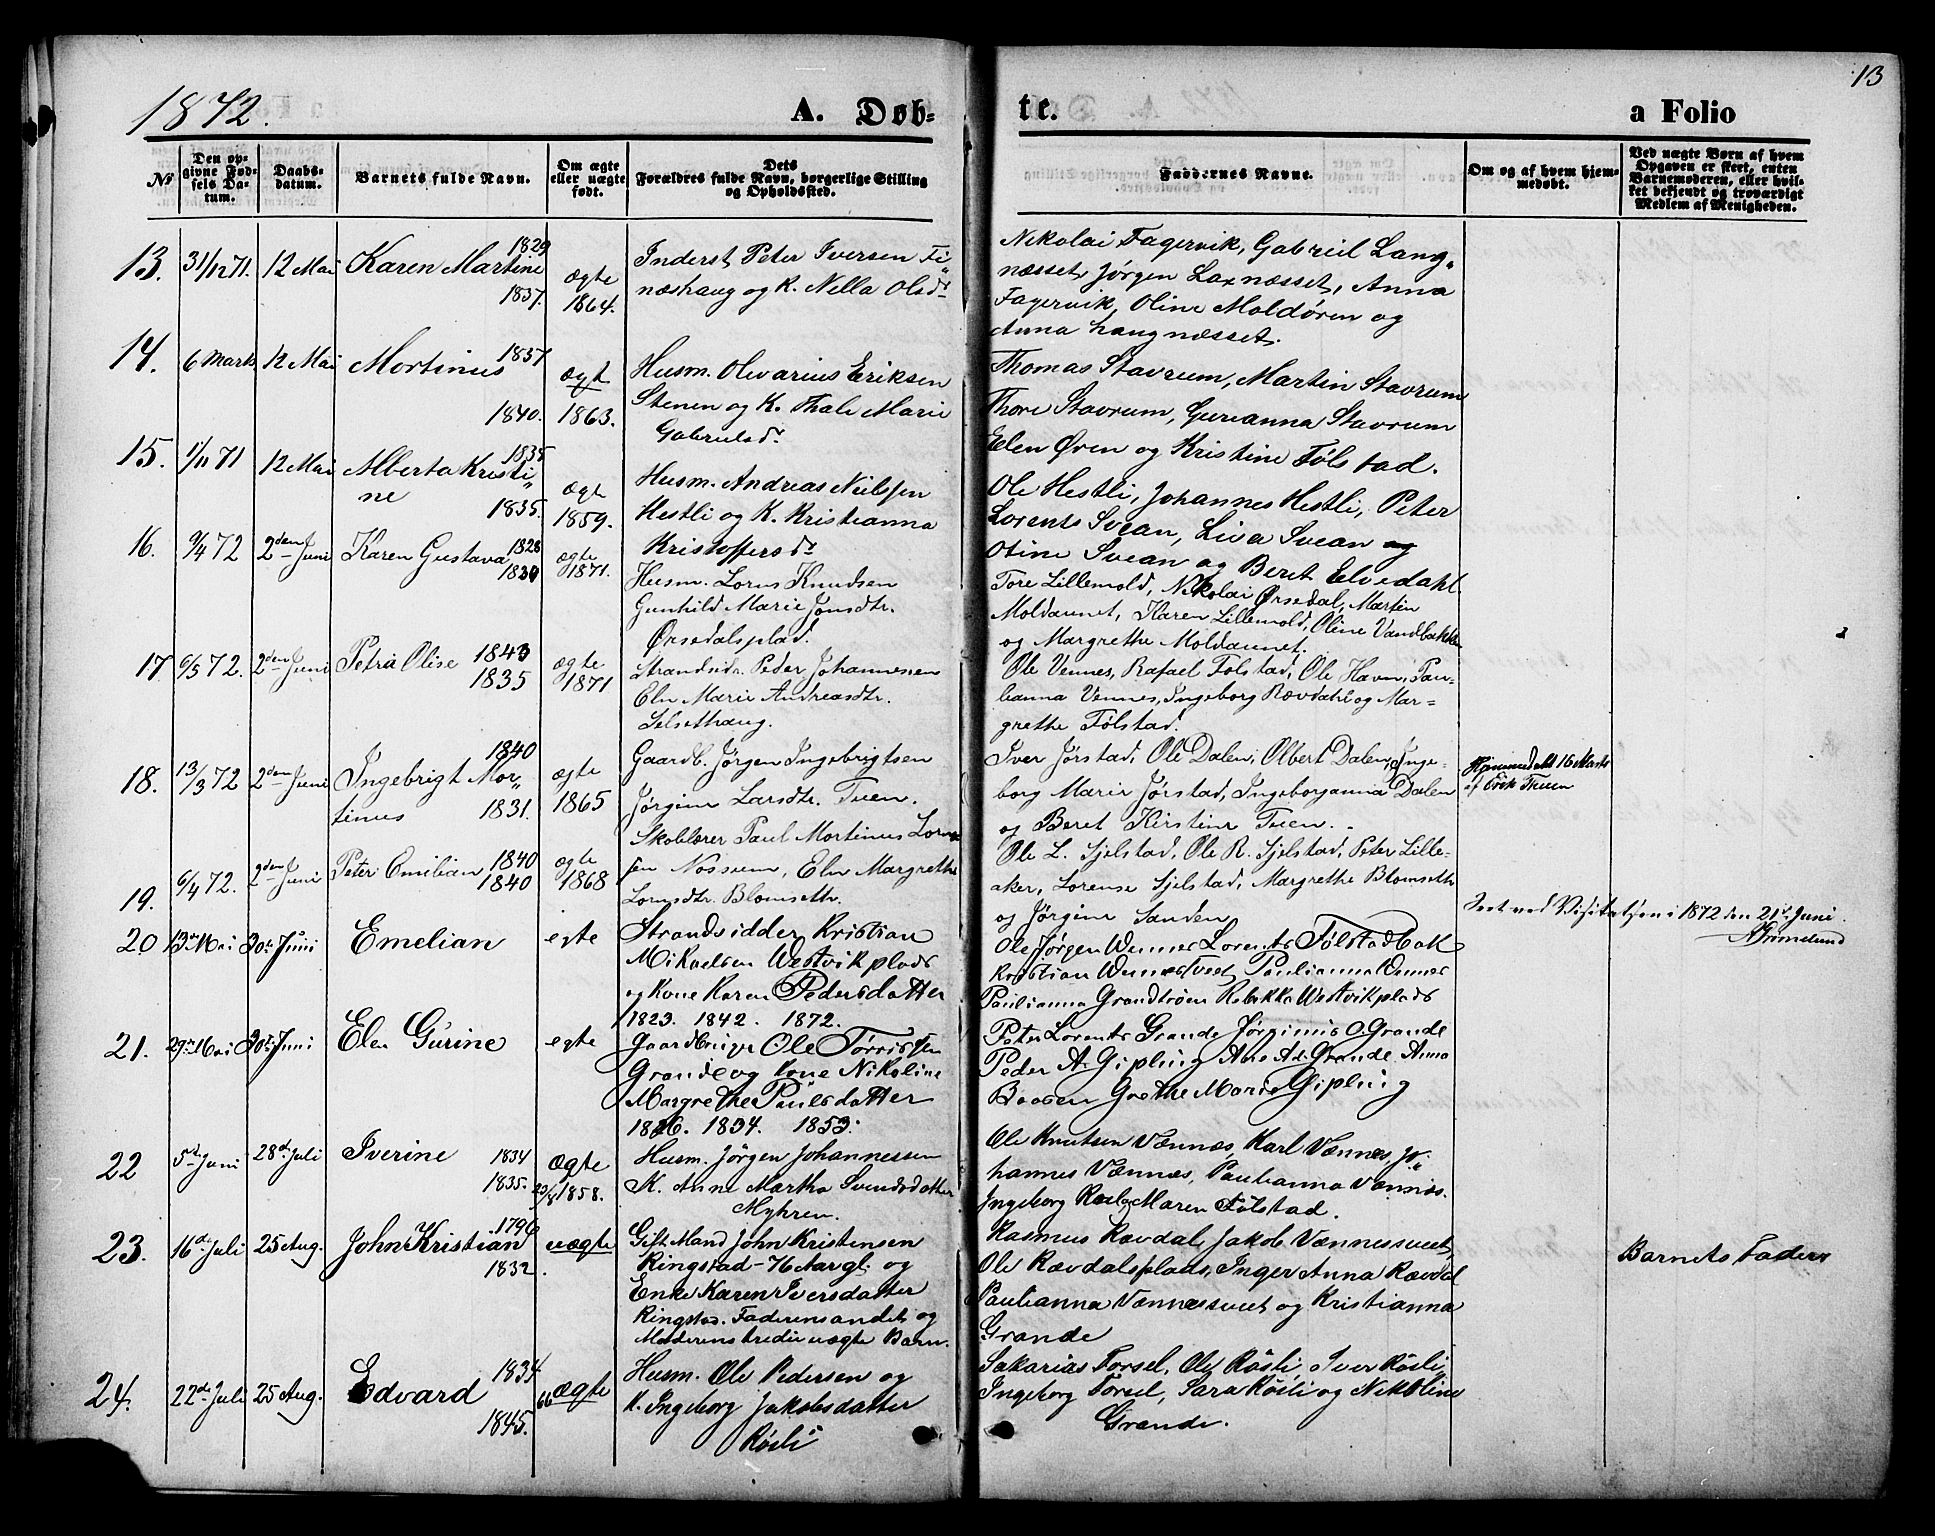 1872.
A. Døb-
te.
a Folio
13
No
Den op-
givne Fød-
sels Da-
tum.
Daabs-
datum.
Barnets fulde Navn.
Om ægte
eller uægte
født.
Dets
Forældres fulde Navn, borgerlige Stilling
og Opholdssted.
Faddernes Navne.
Om og af hvem hjem-
medøbt.
Ved uægte Børn af hvem
Opgaven er skeet, enten
Barnemoderen, eller hvil-
ket bekjendt og troværdigt
Medlem af Menigheden.
13. 31/12 71. 12 Mai Karen Martine 1829
1837.
ægte
1864.
Inderst Peter Iversen Fi-
næshaug og K. Nella Olsdr
Nikolai Fagervik, Gabriel Lang-
næsset, Jørgen Laxnæsset, Anna
Fagervik, Oline Moldøren og
Anna Langnæsset.
14. 6 Marts 12 Mai Mortinus 1837
1840.
ægt
1863.
Husm. Olevarius Eriksen
Stenen og K. Thale Marie
Gabrielsdr.
Thomas Stavrum, Martin Stavrum
Thore Stavrum, Gurianna Stavrum
Elen Øren og Kristine Følstad.
15. 1/11 71 12 Mai Alberta Kristi-
ne
1835
1835.
ægte
1859.
Husm. Andreas Nielsen
Hestli og K. Kristianna
Kristoffersdr
Ole Hestli, Johannes Hestli, Peter
Lorents Svean, Liva Svean og
Otine Svean og Beret Elvedahl.
16. 9/4 72 2den Juni Karen Gustava 1828
1830
ægte
1871.
Husm. Lorns Knudsen
Gunhild Marie Jonsdtr.
Ørsedalsplad.
Tore Lillemold, Nikolai Ørsedal, Martin
Moldaunet, Karen Lillemold, Oline Vandbakken
og Margrethe Moldaunet.
17 6/5 72. 2den Juni Petra Olise 1843
1835
ægte
1871
Strandsidr. Peder Johannesen
Eln Marie Andreasdtr.
Selsethaug.
Ole Vennes, Rafael Følstad, Ole Havn, Pau-
lianna Vennes, Ingeborg Rævdahl og Mar-
grethe Følstad.
18. 13/3 72 2den Juni Ingebrigt Mor-
tinus
1840
1831.
ægte
1865
Gaardb. Jørgen Ingebrigtsen
Jørgine Larsdtr. Tuen.
Iver Jørstad, Ole Dalen, Olbert Dalen, Inge-
borg Marie Jørstad, Ingeborganna Dalen
og Beret Kirstine Tuen.
Hjemmedøbt 16 Marts
af Erik Tuen
19. 6/4 72. 2den Juni Peter Emilian 1840
1840
ægte
1868
Skolelærer Paul Mortinus Lorn-
sen Nossum, Eln Margrethe
Lornsdtr. Blomseth.
Ole L. Sjelstad, Ole R. Sjelstad, Peter Lille-
aker, Lorense Sjelstad, Margrethe Blomseth
og Jørgine Sanden
Seet ved Visitatsen i 1872 den 21de Juni.
20 13de Mai 30te Juni Emelian egte
Strandsidder Kristian
Mikaelsen Westvikplads
og Kone Karen Pedersdatter
1823. 1842. 1872.
Ole Jørgen Wennes Lorents Følstadbak
Kristian Wennestveet Paulianna Wennes
Paulianna Grandtrøen Rebekka Westvikplads
21. 29de Mai 30te Juni Elen Gurine egte
Gaardbruger Ole Torrissen
Grande og Kone Nikoline
Margrethe Paulsdatter
1826. 1834. 1853.
Peter Lorents Grande Jørginius O. Grande
Peder A. Gipling Ane Ad. Grande Anna
Boosen Grethe Maria Gipling
22 5te Juni 28de Juli Iverine 1834
1835.
Ægte
23/8 1858.
Husm. Jørgen Johannessen
K. Anne Martha Svendsdatter
Myhren.
Ole Knutsen Vænnæs, Karl Vænnes, Jo-
hannes Vænnæs, Paulianna Vænnæs.
Ingeborg Roel, Maren Følstad.
23. 16de Juli 25 Aug. John Kristian 1796
1832.
uægte
Gift Mand John Kristensen
Ringstad - 76 Aar gl. og
Enke Karen Iversdatter
Ringstad. Faderens andet og
Moderens tredie uægte Barn.
Rasmus Rævdal, Jakob Vænnessveet,
Ole Rævdalsplads, Inger Anna Rævdal
Paulianna Vænnessveet og Kristianna
Grande
Barnets Fader
24. 22de Juli 25 Aug. Edvard 1834
1845.
66 ægte
Husm. Ole Pedersen og
K. Ingeborg Jakobsdatter
Røsli
Sakarias Forsel, Ole Røsli, Iver Røsli,
Ingeborg Forsel, Sara Røsli og Nikoline
Grande.